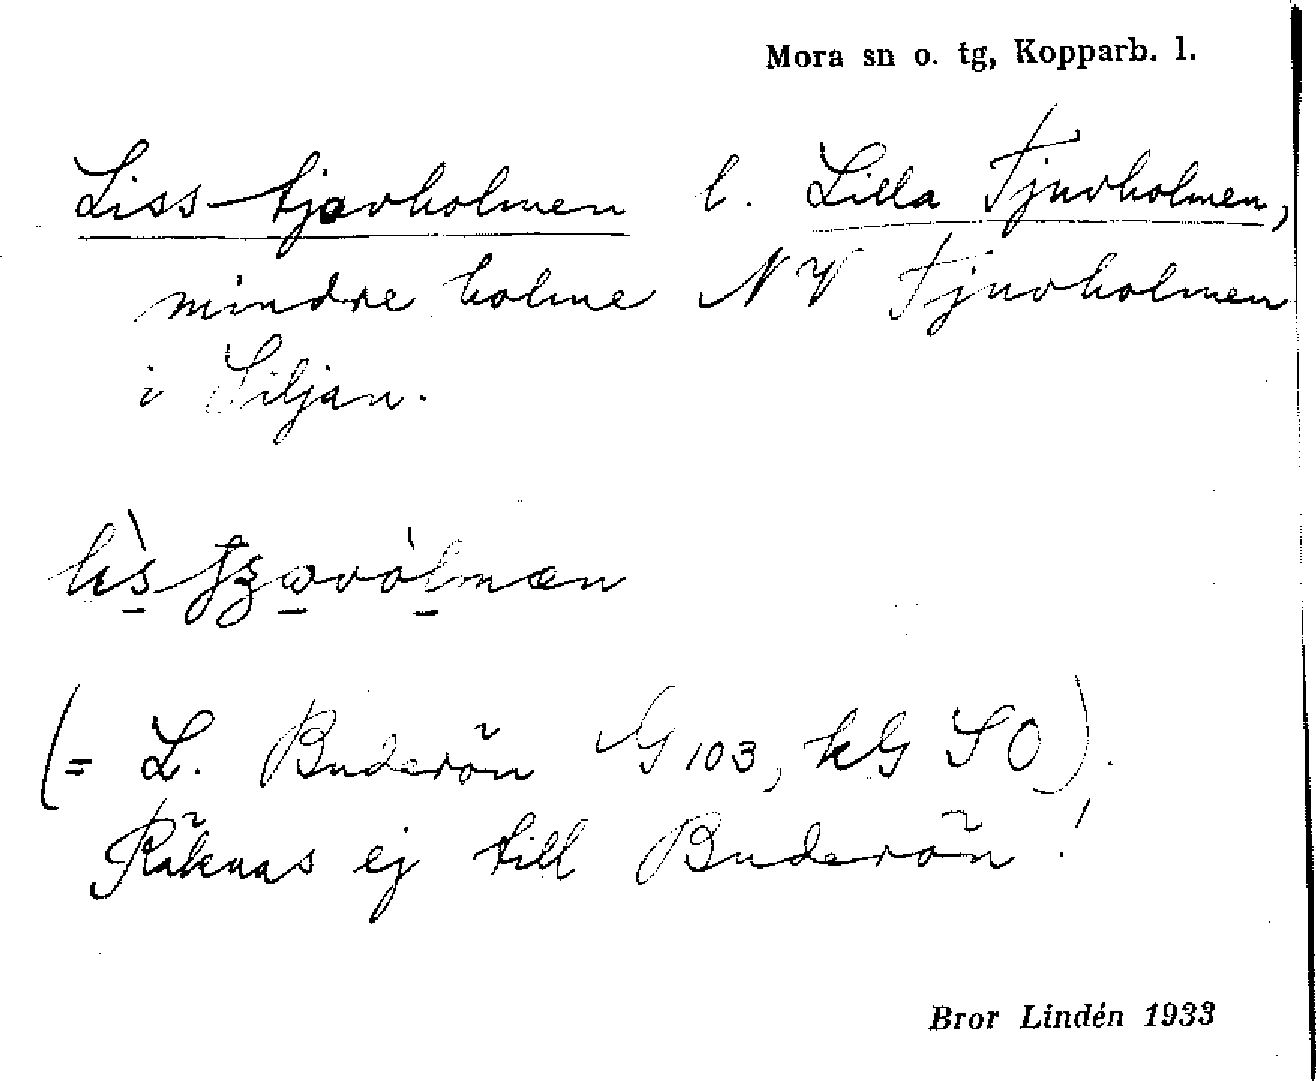 Mora sn o. tg, Kopparb. l.
Liss-tjovholmen l. Lilla Tjuvholmen,
mindre holme NV Tjuvholmen
i Siljan.
(= L. Buderön G 103, kG SO).
Räknas ej till Buderön!
Bror Lindén 1933